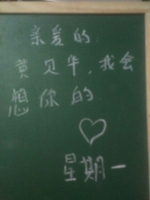 亲爱的:
黄贝华,我会
想你的
星期一